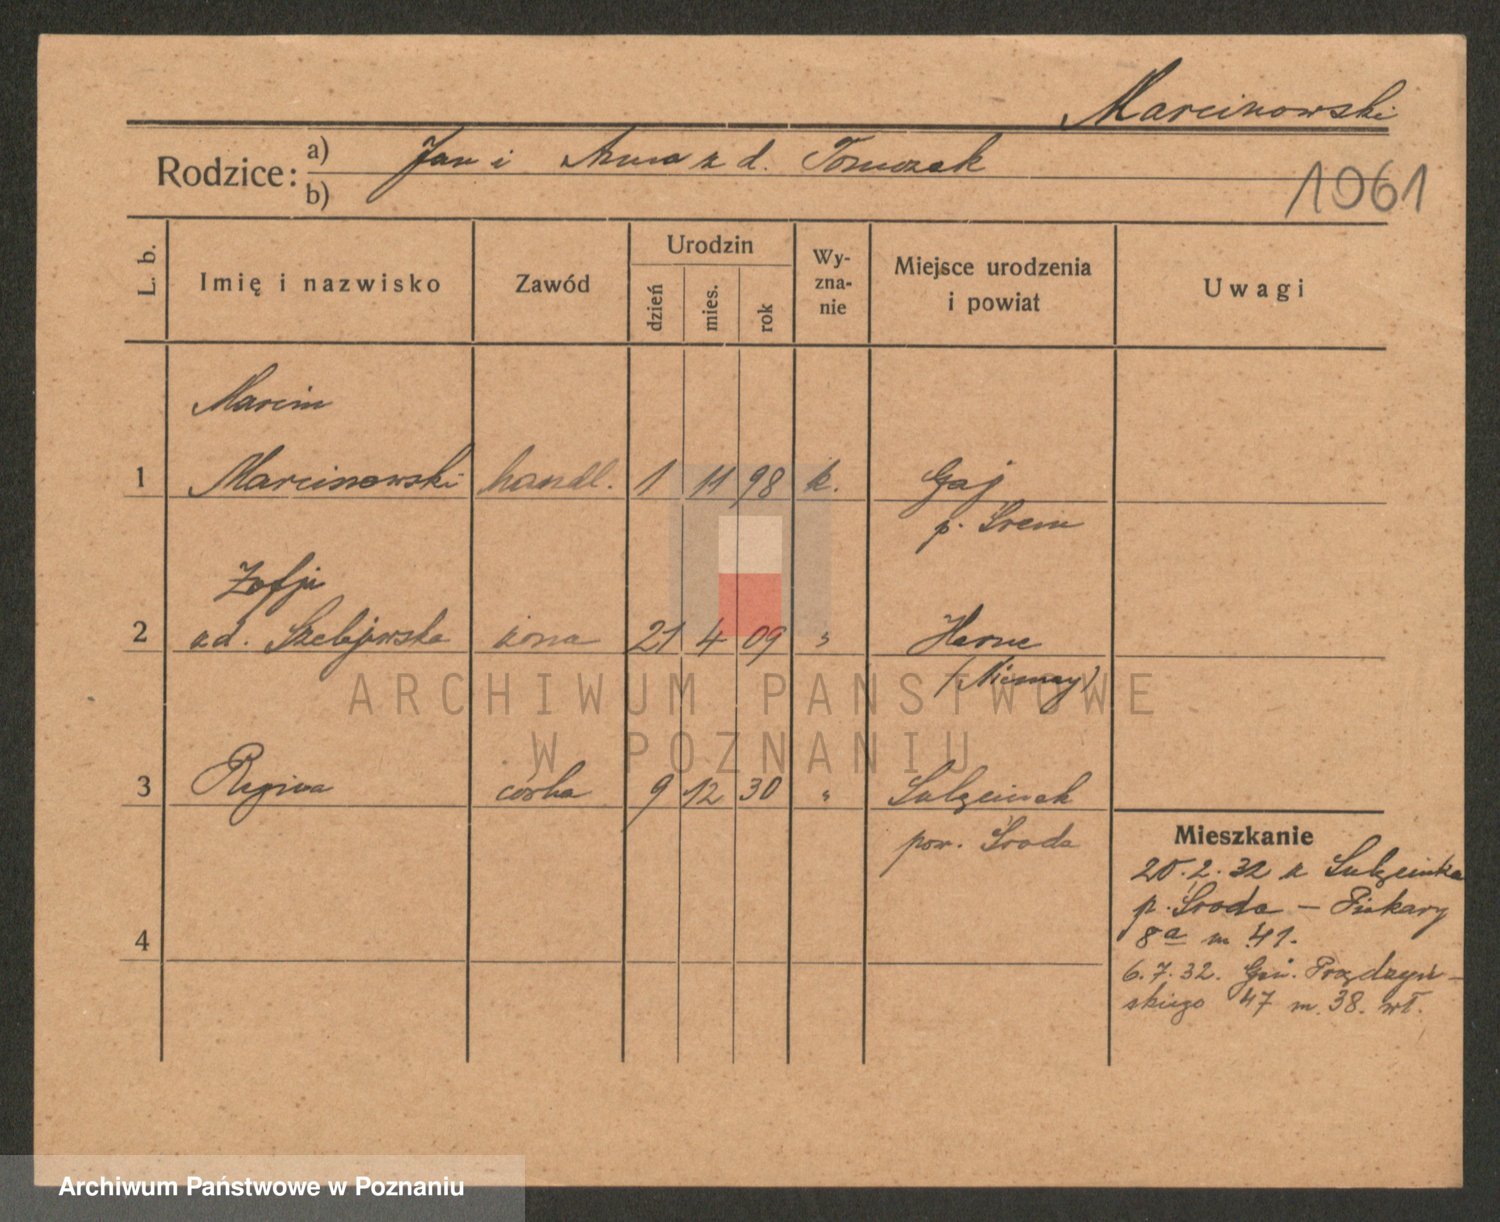 Marcinowski
Rodzice: a) Jan i Anna z d. Tomczak
b)
1061
L. b.
Imię i nazwisko
Zawód
Urodzin
dzień
mies.
rok
Wy-
zna-
nie
Miejsce urodzenia
i powiat
Uwagi
Marcin
1 Marcinowski handl. 1 11 98 k. Gaj
p. Śrem
Zofja
2 z d. żona 21 4 09 " Herne
(Niemcy)
3 Regina córka 9 12 30 " Sulęcinek
pow. Środa
4
Mieszkanie
20.2.32 z Sulęcinka
p. Środa – Piekary
8a m 41.
6.7.32. Gen. Prądzyń-
skiego 47 m. 38. wł.
ARCHIWUM PAŃSTWOWE
W POZNANIU
Archiwum Państwowe w Poznaniu